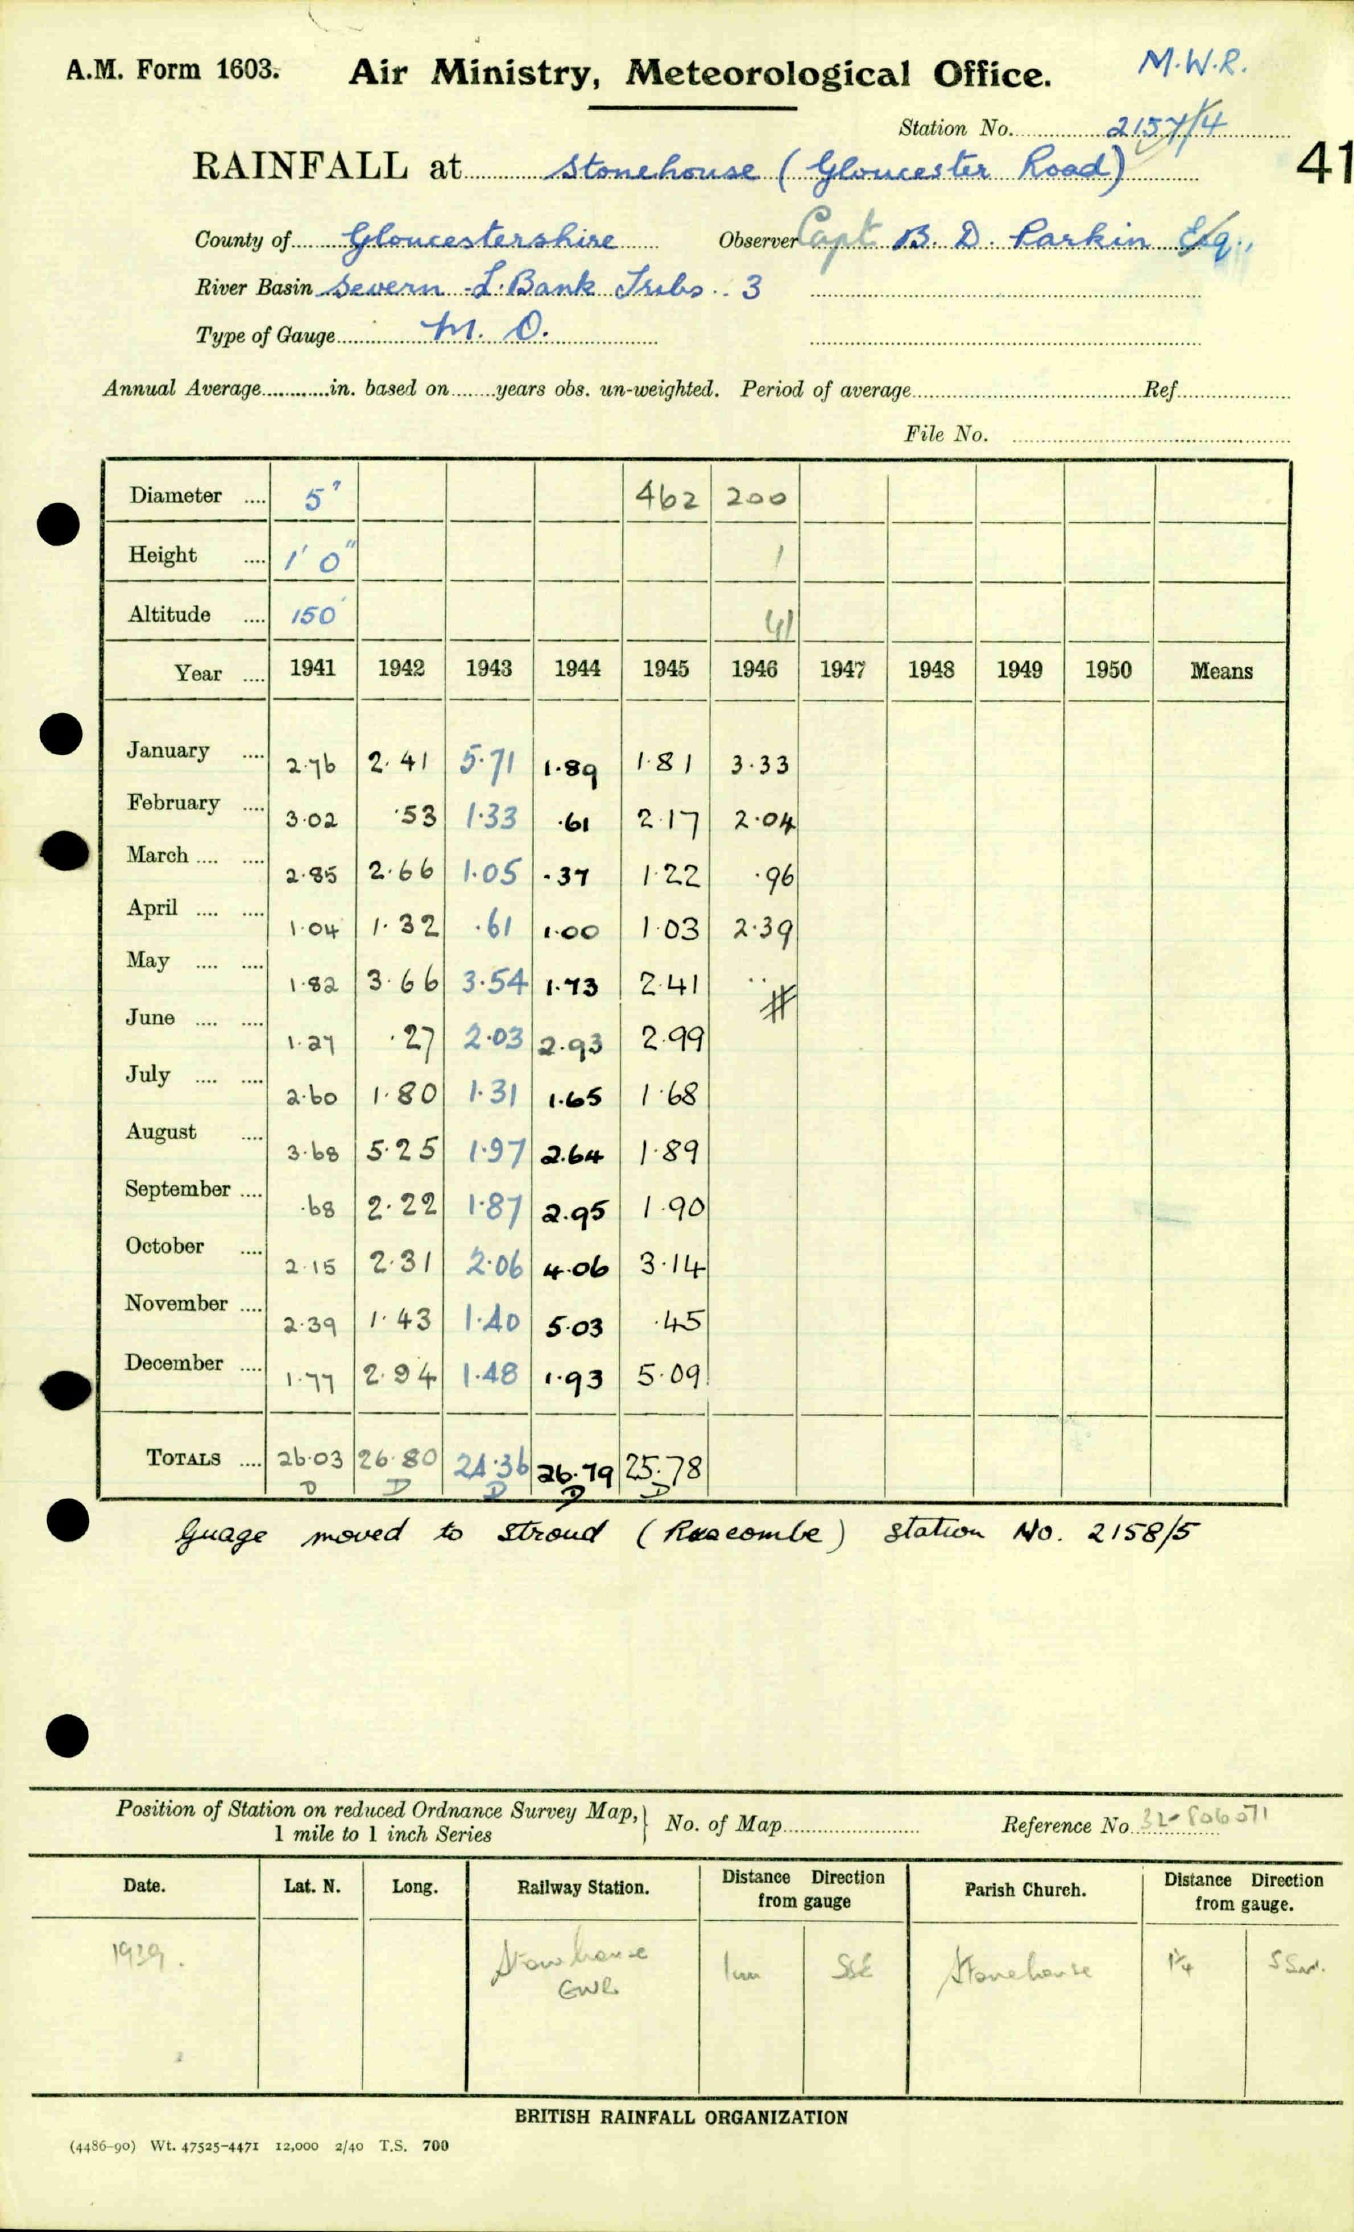 A.M. Form 1603. Air Ministry, Meteorological Office. M.W.R.
Station No. 2157/4
RAINFALL at Stonehouse (Gloucester Road) 41
County of Gloucestershire Observer Capt B. D. Parkin Esq.,
River Basin Severn - L. Bank Tribs. 3
Type of Gauge M. O.
Annual Average in. based on years obs. un-weighted. Period of average Ref
File No.
Diameter .... 5" 462 200
Height .... 1' 0" 1
Altitude .... 150' 41
Year .... 1941 1942 1943 1944 1945 1946 1947 1948 1949 1950 Means
January .... 2.76 2.41 5.71 1.89 1.81 3.33
February .... 3.02 .53 1.33 .61 2.17 2.04
March .... .... 2.85 2.66 1.05 .37 1.22 .96
April .... .... 1.04 1.32 .61 1.00 1.03 2.39
May .... .... 1.82 3.66 3.54 1.73 2.41 ..
June .... .... 1.27 .27 2.03 2.93 2.99
July .... .... 2.60 1.80 1.31 1.65 1.68
August .... 3.68 5.25 1.97 2.64 1.89
September .... .68 2.22 1.87 2.95 1.90
October .... 2.15 2.31 2.06 4.06 3.14
November .... 2.39 1.43 1.40 5.03 .45
December .... 1.77 2.94 1.48 1.93 5.09
TOTALS .... 26.03 26.80 24.36 26.79 25.78
D D D D D
Guage moved to Stroud (Ruscombe) Station No. 2158/5
Position of Station on reduced Ordnance Survey Map, 1 mile to 1 inch Series } No. of Map Reference No 32-806071
Date. Lat. N. Long. Railway Station. Distance Direction from gauge Parish Church. Distance Direction from gauge.
1939. Stonehouse GWR 1m SSE Stonehouse 1¼ SSW.
BRITISH RAINFALL ORGANIZATION
(4486-90) Wt. 47525-4471 12,000 2/40 T.S. 700